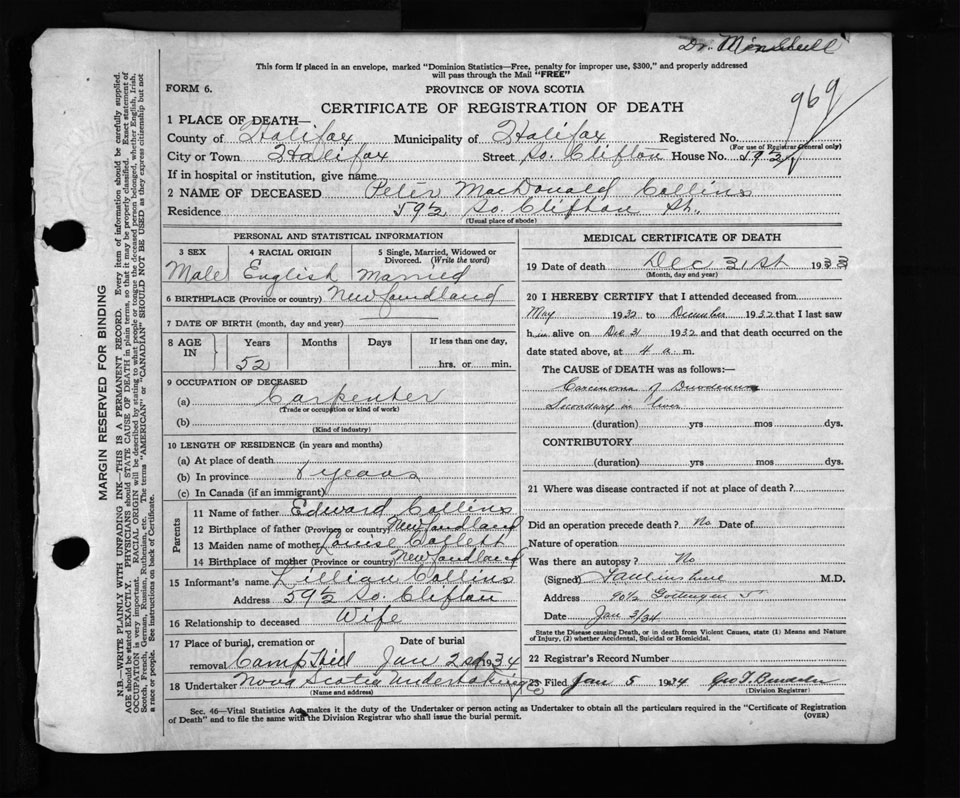 Dr. Minshull
This form if placed in an envelope, marked "Dominion Statistics—Free, penalty for improper use, $300," and properly addressed
will pass through the Mail "FREE"
FORM 6.
PROVINCE OF NOVA SCOTIA
CERTIFICATE OF REGISTRATION OF DEATH
969
1 PLACE OF DEATH—
County of Halifax Municipality of Halifax Registered No.
(For use of Registrar General only)
City or Town Halifax Street So. Clifton House No. 59½
If in hospital or institution, give name
2 NAME OF DECEASED Peter MacDonald Collins
Residence 59½ So. Clifton St.
(Usual place of abode)
PERSONAL AND STATISTICAL INFORMATION
3 SEX 4 RACIAL ORIGIN 5 Single, Married, Widowed or
Divorced. (Write the word)
Male English Married
6 BIRTHPLACE (Province or country) Newfoundland
7 DATE OF BIRTH (month, day and year)
8 AGE IN Years Months Days If less than one day,
52 hrs. or min.
9 OCCUPATION OF DECEASED
(a) Carpenter
(Trade or occupation or kind of work)
(b)
(Kind of industry)
10 LENGTH OF RESIDENCE (in years and months)
(a) At place of death
(b) In province 8 years
(c) In Canada (if an immigrant)
Parents
11 Name of father Edward Collins
12 Birthplace of father (Province or country) Newfoundland
13 Maiden name of mother Louise Collett
14 Birthplace of mother (Province or country) Newfoundland
15 Informant's name Lillian Collins
Address 59½ So. Clifton
16 Relationship to deceased Wife
17 Place of burial, cremation or Date of burial
removal Camp Hill Jan 2nd 1934
18 Undertaker Nova Scotia Undertaking Co
(Name and address)
MEDICAL CERTIFICATE OF DEATH
19 Date of death Dec 31st 1933
(Month, day and year)
20 I HEREBY CERTIFY that I attended deceased from
May 1932 to December 1932 that I last saw
h im alive on Dec 31 1932 and that death occurred on the
date stated above, at 4 a m.
The CAUSE of DEATH was as follows:—
Carcinoma of Duodenum
Secondary in liver
(duration) yrs mos dys.
CONTRIBUTORY
(duration) yrs mos dys.
21 Where was disease contracted if not at place of death?
Did an operation precede death? No Date of
Nature of operation
Was there an autopsy? No
(Signed) M.D.
Address 90½ Gottingen St
Date Jan 3/34
State the Disease causing Death, or in death from Violent Causes, state (1) Means and Nature
of Injury, (2) whether Accidental, Suicidal or Homicidal.
22 Registrar's Record Number
23 Filed Jan 5 1934 Geo F.
(Division Registrar)
Sec. 46—Vital Statistics Act, makes it the duty of the Undertaker or person acting as Undertaker to obtain all the particulars required in the "Certificate of Registration
of Death" and to file the same with the Division Registrar who shall issue the burial permit. (OVER)
MARGIN RESERVED FOR BINDING
N.B.—WRITE PLAINLY WITH UNFADING INK—THIS IS A PERMANENT RECORD. Every item of information should be carefully supplied.
AGE should be stated EXACTLY. PHYSICIANS should STATE CAUSE OF DEATH in plain terms, so that it may be properly classified. Exact statement of
OCCUPATION is very important. RACIAL ORIGIN will be described by stating to what people or tongue the deceased person belonged, whether English, Irish,
Scotch, French, German, Russian, Ruthenian, etc. The terms "AMERICAN" or "CANADIAN" SHOULD NOT BE USED as they express citizenship but not
a race or people. See instructions on back of Certificate.